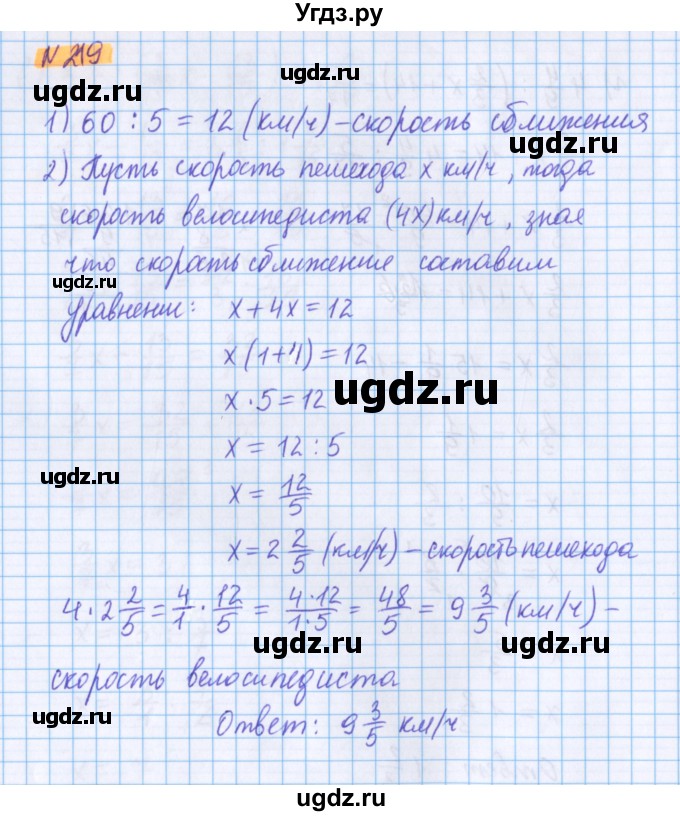 Угдз.ру
N 219
1) 60 : 5 = 12 (км/ч) – скорость сближения
ugdz.ru
ugdz.ru
2) Пусть скорость пешехода x км/ч, тогда
скорость велосипедиста (4x) км/ч, зная
ugdz.ru
что скорость сближение составим
уравнении: x + 4x = 12
ugdz.ru
x (1+4) = 12
x · 5 = 12
ugdz.ru
x = 12 : 5
ugdz.ru
x = 12/5
x = 2 2/5 (км/ч) – скорость пешехода
ugdz.ru
4 · 2 2/5 = 4/1 · 12/5 = 4·12/1·5 = 48/5 = 9 3/5 (км/ч) –
ugdz.ru
ugdz.ru
скорость велосипедиста
ugdz.ru
Ответ: 9 3/5 км/ч
ugdz.ru
ugdz.ru